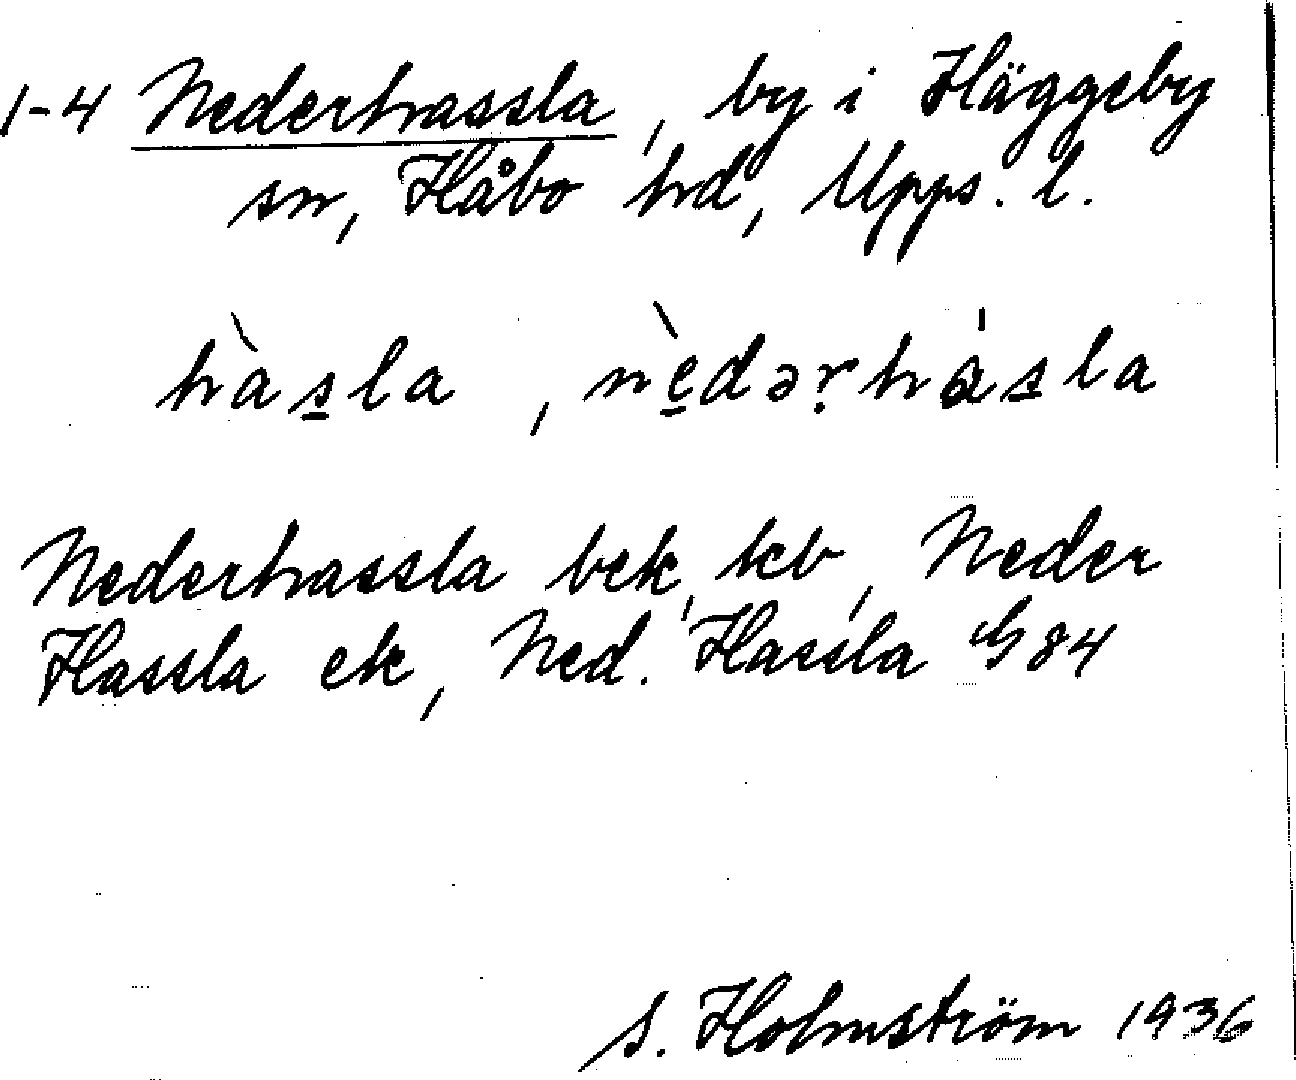 1-4 Nederhassla, by i Häggeby
sn, Håbo hd, Upps. l.
hàs̲la, nè̲dər̤hás̲la
Nederhassla bek, kb, Neder
Hassla ek, Ned. Hassla G 84
S. Holmström 1936